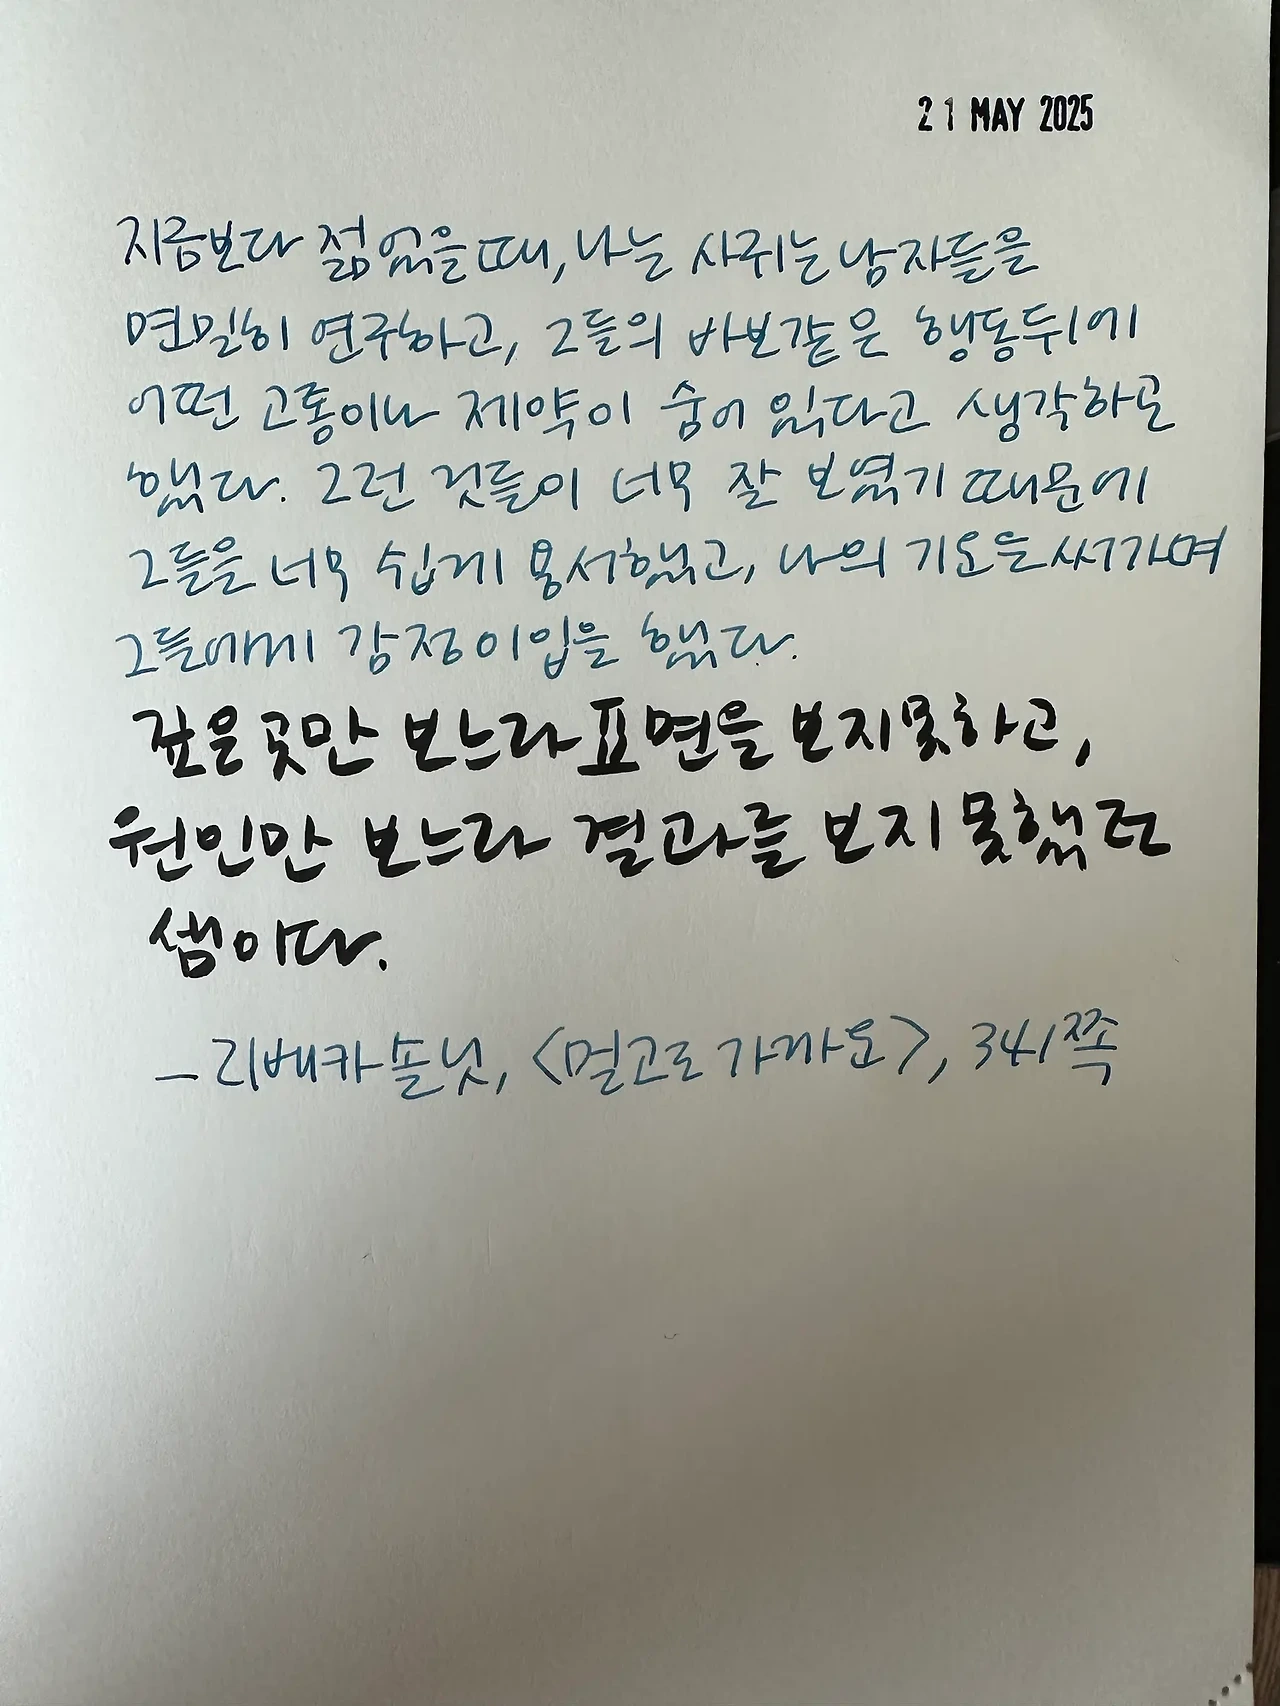 21 MAY 2025
지금보다 젊었을때, 나는 사귀는 남자들을
면밀히 연구하고, 그들의 바보같은 행동뒤에
어떤 고통이나 제약이 숨어 있다고 생각하곤
했다. 그런 것들이 너무 잘 보였기 때문에
그들을 너무 쉽게 용서했고, 나의 기운을 써가며
그들에게 감정이입을 했다.
깊은 곳만 보느라 표면을 보지 못하고,
원인만 보느라 결과를 보지 못했던
셈이다.
– 리베카 솔닛, <멀고도 가까운>, 341쪽